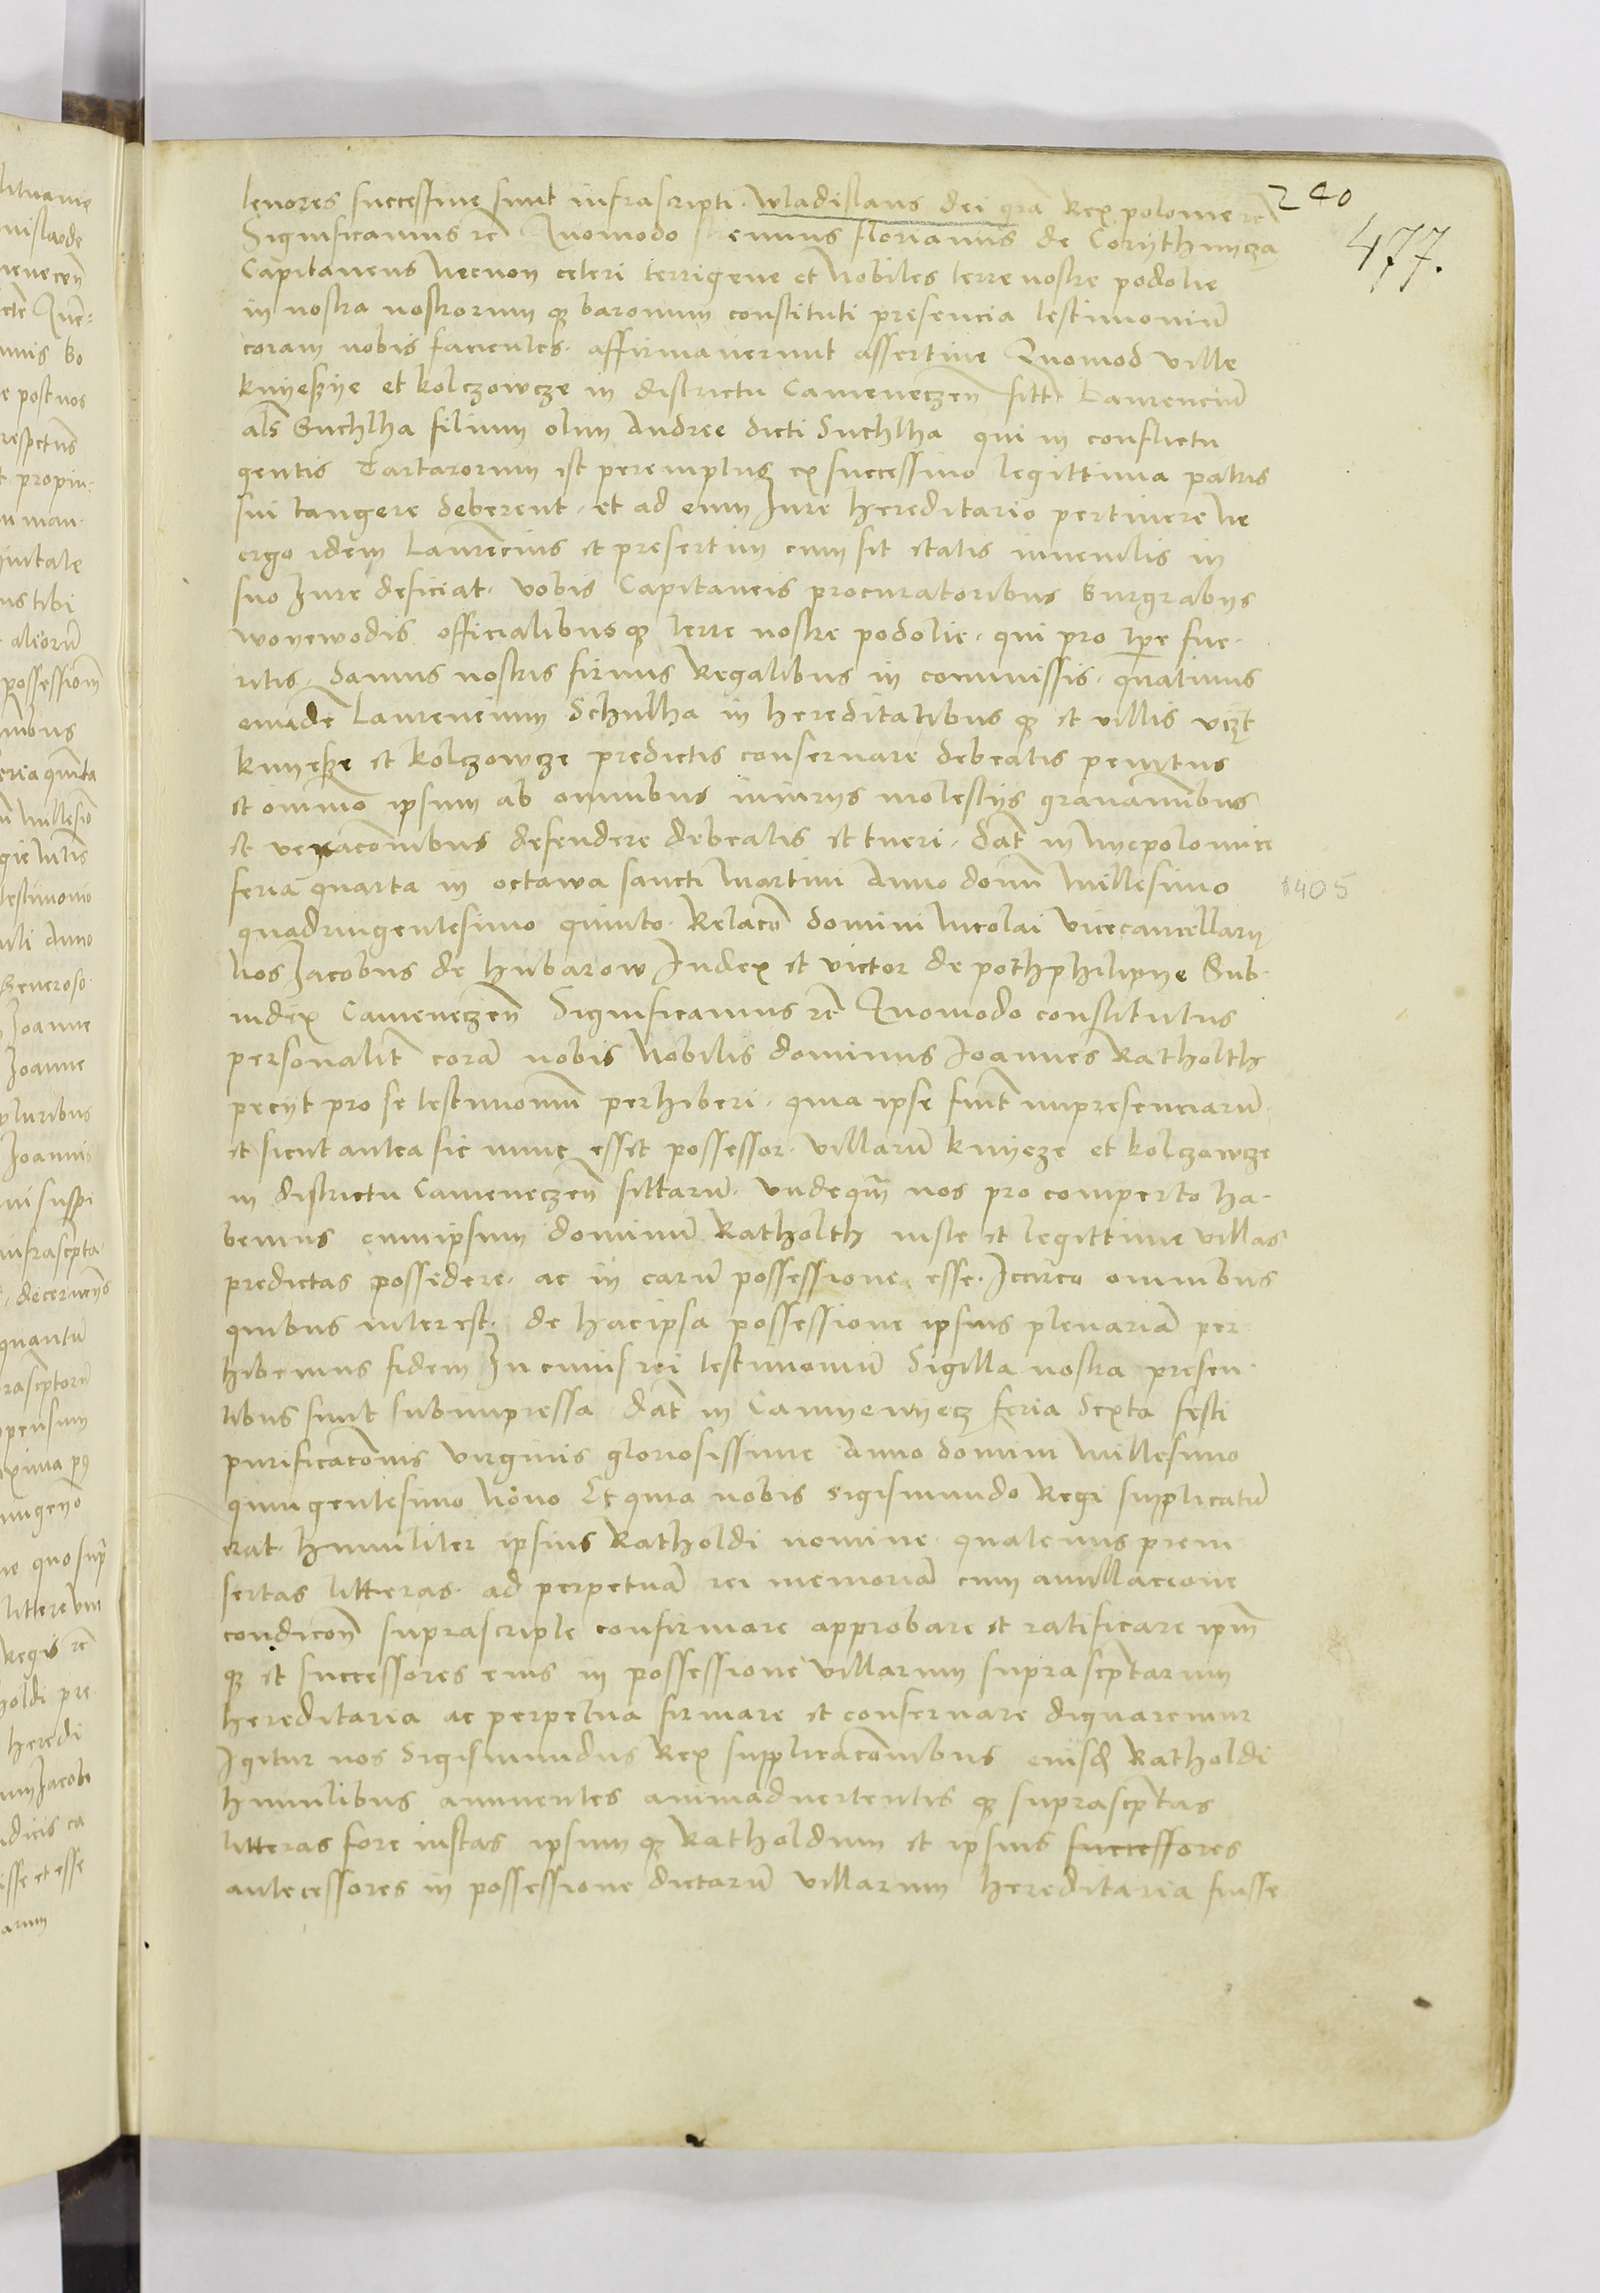 240
477.
lenores successive sunt infrascripti. Wladislaus dei gra Rex polonie rc
Significamus rc Quomodo Florianus de Corythnycza
Capitaneus Necnon celeri terrigene et Nobiles terre nostre podolie
in nostra nostrorum q baronum constituti presencia testimoniū
coram nobis facientes. affirmaverunt assertive Quomod ville
knyeszye et kolczowcze in districtu Cameneczen sitt Laurenciū
als Suchlha filium olim Andree dicti Suchlha qui in conflictu
gentis Tartarorum ist peremptus ex successivo legittima patris
sui tangere deberent. et ad eum Jure hereditario pertinere Ne
ergo idem Laurencius et presertim cum sit etatis iuvenilis in
suo Jure deficiat. vobis Capitaneis procuratoribus Burgrabiis
woyewodis officialibusq terre nostre podolie. qui pro tpe fue-
ritis. damus nostris firmis Regalibus in commissis. quatinus
eundē Laurencium Schulha in hereditatibus q et villis vczt
knyeze et kolczowcze predictis conservare debeatis penitus
et immo ipsum ab omnibus iniuriis molestiis gravaminibus
et vexacoībus defendere debeatis et tueri. Dat in nyepolomice
feria quarta in octava sancti Martini Anno domi Millesimo
1405
quadringentesimo quinto. Relaco domini Nicolai vicecancellarii
Nos Jacobus de hubarow Judex et victor de pothphilipye Sub-
iudex Cameneczen Significamus rc Quomodo constitutus
personalit corā nobis Nobilis dominus Joannes Ratholth
peciit pro se testimoniū perhiberi. quia ipse fuit impresenciarū
et sicut antea sic nunc esset possessor. villarū knyeze et kolczowcze
in districtu Cameneczen sittarū. vndeqm nos pro comperto ha-
bemus eumipsum dominū Ratholth iuste et legittime villas
predictas possidere. ac in earū possessione esse. Iccirco omnibus
quibus interest. de hac ipsa possessione ipsius plenariā per-
hibemus fidem In cuius rei testimoniū Sigilla nostra presen-
tibus sunt subimpressa Dat in Camyenyecz feria Sexta festi
purificacōnis virginis gloriosissime Anno domini Millesimo
quingentesimo Nono Et quia nobis Sigismundo Regi supplicatū
erat. humiliter ipsius Ratholdi nomine. quatenus prein
sertas litteras. ad perpetuā rei memoriā cum anullacione
condicōn suprascripte confirmare approbare et ratificare ipm
q et successores eius in possessione villarum suprascptarum
hereditaria ac perpetua firmare et conservare dignaremur
Igitur nos Sigismundus Rex supplicacōnibus eiusd Ratholdi
humilibus annuentes animadvertentis q suprascptas
litteras fore iustas ipsum q Ratholdum et ipsius successores
antecessores in possessione dictarū villarum hereditaria fuisse